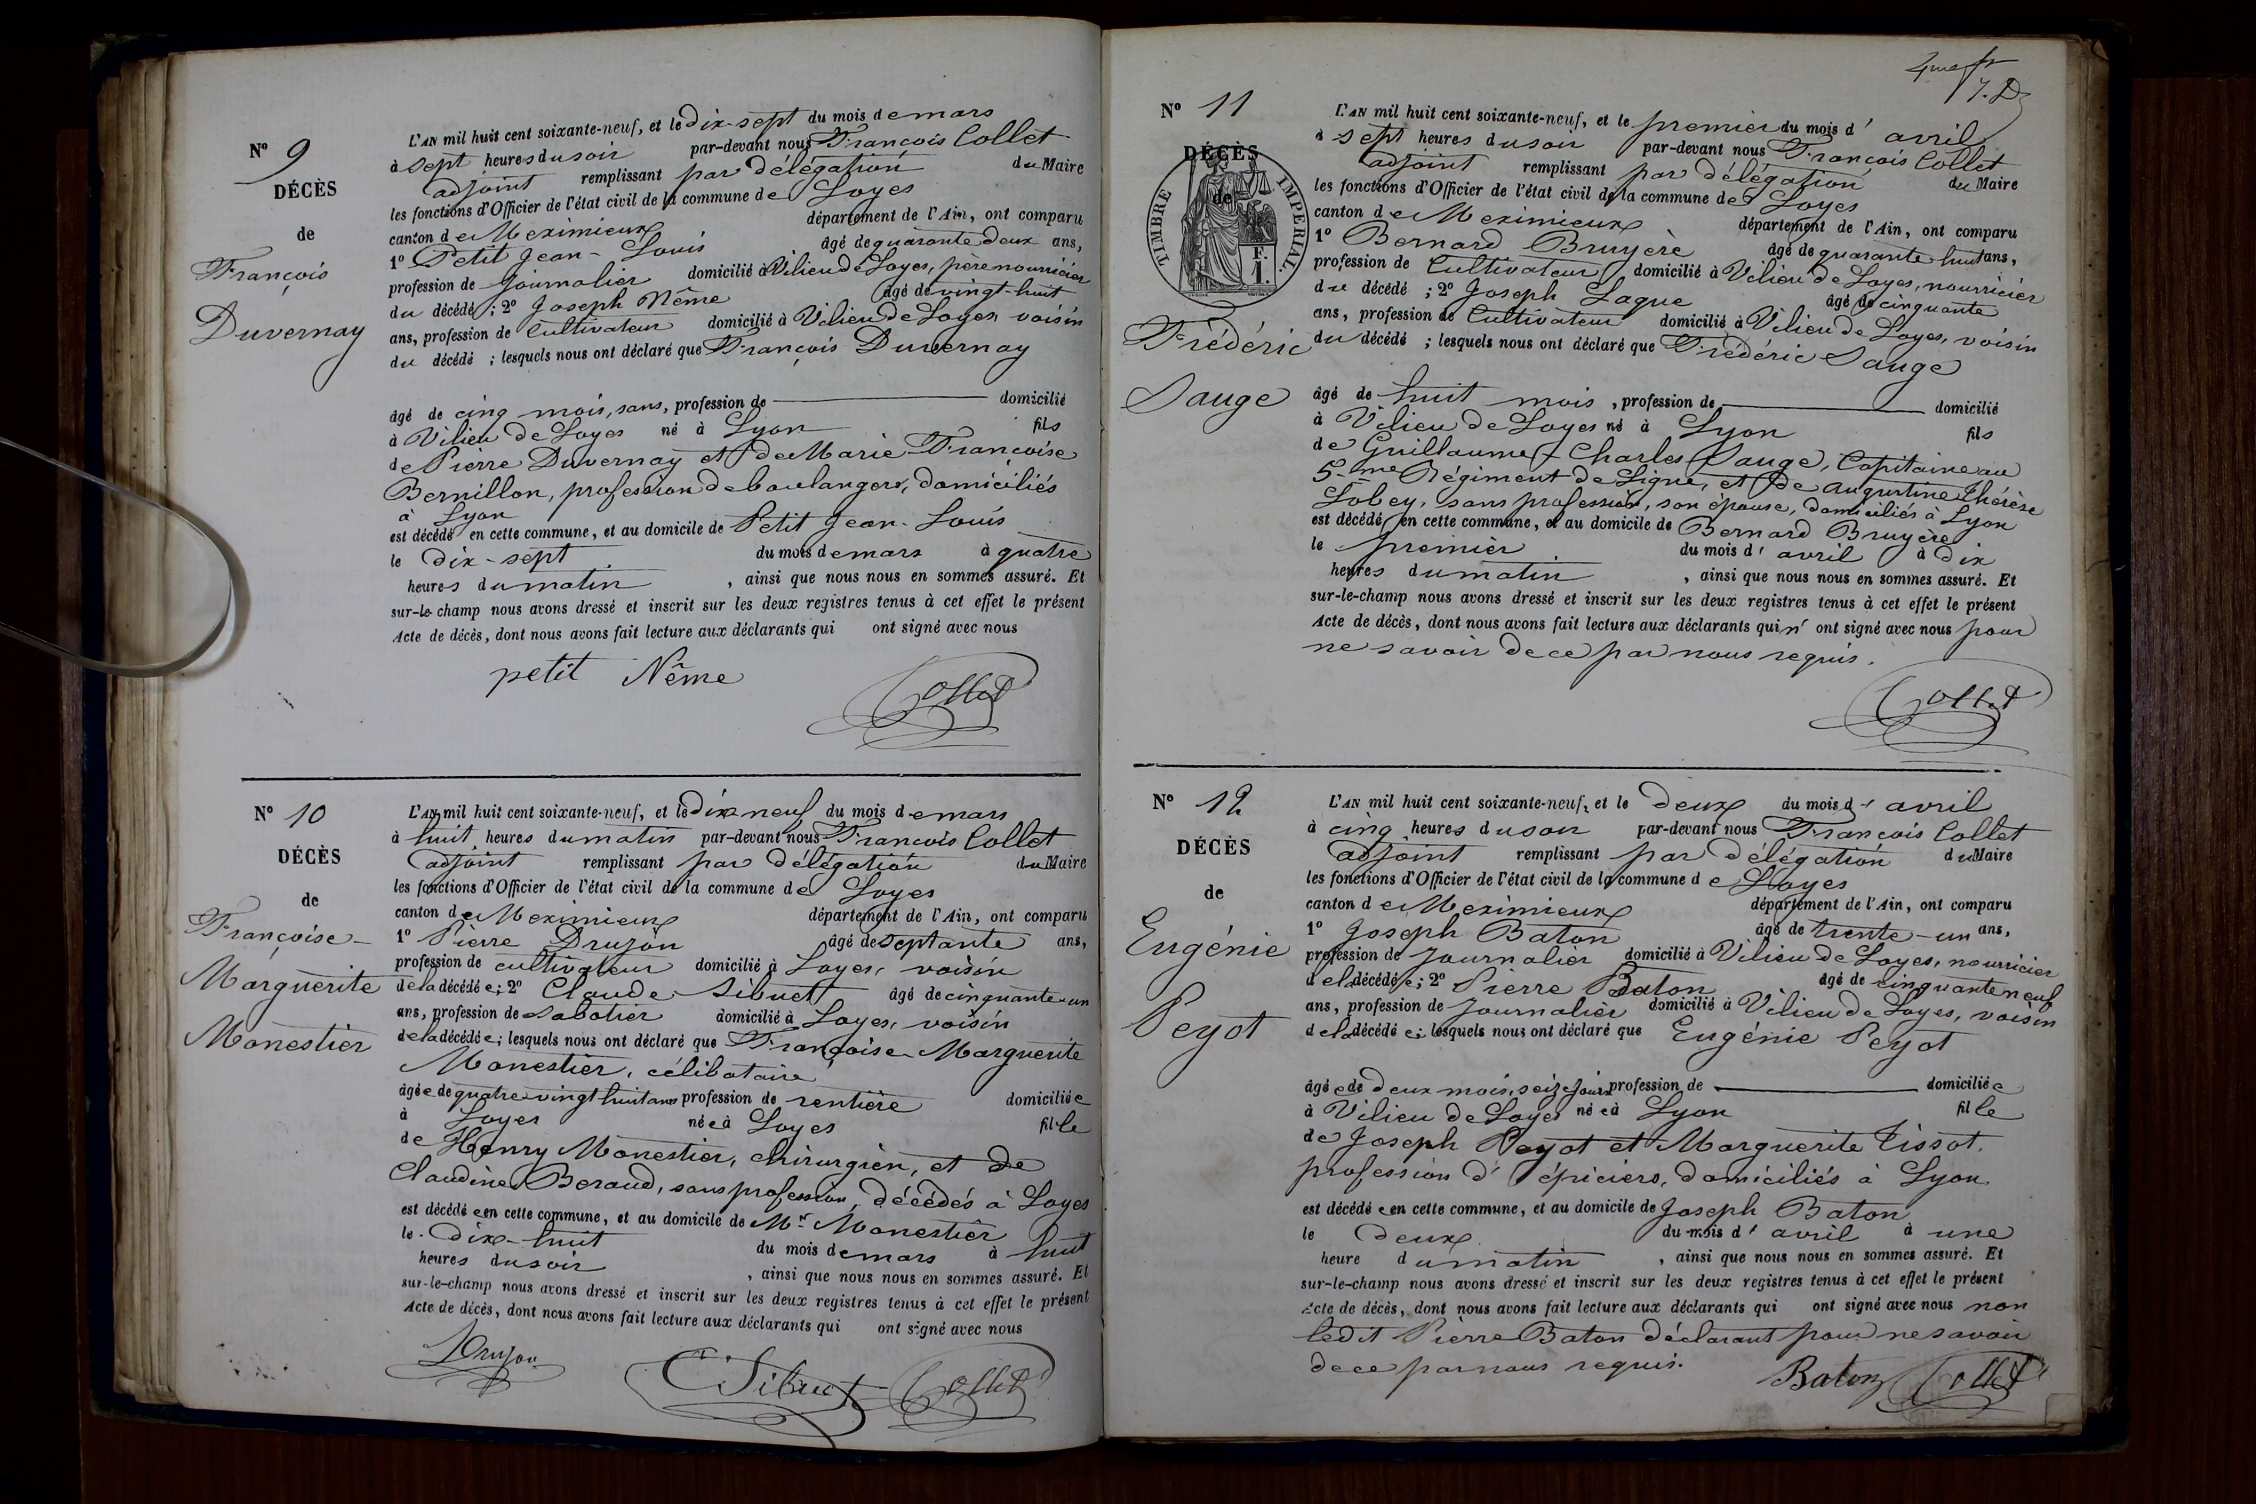 N° 9
DÉCÈS
de
François
Duvernay
L'AN mil huit cent soixante-neuf, et le dix-sept du mois de mars
à sept heures du soir par-devant nous François Collet
adjoint remplissant par délégation du Maire
les fonctions d'Officier de l'état civil de la commune de Loyes
canton de Meximieux département de l'Ain, ont comparu
1° Petit Jean-Louis âgé de quarante deux ans,
profession de journalier domicilié à Vilieu de Loyes, père nourricier
du décédé ; 2° Joseph Nême âgé de vingt-huit
ans, profession de Cultivateur domicilié à Vilieu de Loyes, voisin
du décédé ; lesquels nous ont déclaré que François Duvernay
âgé de cinq mois, sans, profession de domicilié
à Vilieu de Loyes né à Lyon fils
de Pierre Duvernay et de Marie Françoise
Bernillon, profession de boulangers, domiciliés
à Lyon
est décédé en cette commune, et au domicile de Petit Jean-Louis
le dix-sept du mois de mars à quatre
heures du matin , ainsi que nous nous en sommes assuré. Et
sur-le-champ nous avons dressé et inscrit sur les deux registres tenus à cet effet le présent
Acte de décès, dont nous avons fait lecture aux déclarants qui ont signé avec nous
petit Nême Collet
N° 10
DÉCÈS
de
Françoise-
Marguerite
Monestier
L'AN mil huit cent soixante-neuf, et le dix neuf du mois de mars
à huit heures du matin par-devant nous François Collet
adjoint remplissant par délégation du Maire
les fonctions d'Officier de l'état civil de la commune de Loyes
canton de Meximieux département de l'Ain, ont comparu
1° Pierre Drujon âgé de septante ans,
profession de cultivateur domicilié à Loyes, voisin
de la décédée ; 2° Claude Sibuet âgé de cinquante un
ans, profession de sabotier domicilié à Loyes, voisin
de la décédée ; lesquels nous ont déclaré que Françoise Marguerite
Monestier, célibataire
âgée de quatre vingt huit ans profession de rentière domiciliée
à Loyes née à Loyes fille
de Henry Monestier, chirurgien, et de
Claudine Beraud, sans profession, décédés à Loyes
est décédée en cette commune, et au domicile de Mr Monestier
le dix-huit du mois de mars à huit
heures du soir , ainsi que nous nous en sommes assuré. Et
sur-le-champ nous avons dressé et inscrit sur les deux registres tenus à cet effet le présent
Acte de décès, dont nous avons fait lecture aux déclarants qui ont signé avec nous
Drujon C Sibuet Collet
N° 11
DÉCÈS
de
TIMBRE IMPERIAL.
F.
1.
Frédéric
Sauge
L'AN mil huit cent soixante-neuf, et le premier du mois d' avril
à sept heures du soir par-devant nous François Collet
adjoint remplissant par délégation du Maire
les fonctions d'Officier de l'état civil de la commune de Loyes
canton de Meximieux département de l'Ain, ont comparu
1° Bernard Bruyère âgé de quarante huit ans,
profession de Cultivateur domicilié à Vilieu de Loyes, nourricier
du décédé ; 2° Joseph Lague âgé de cinquante
ans, profession de Cultivateur domicilié à Vilieu de Loyes, voisin
du décédé ; lesquels nous ont déclaré que Frédéric Sauge
âgé de huit mois , profession de domicilié
à Vilieu de Loyes né à Lyon fils
de Guillaume Charles Sauge, Capitaine au
5me Régiment de Ligne, et de Augustine Thérèse
Lobey, sans profession, son épouse, domiciliés à Lyon
est décédé en cette commune, et au domicile de Bernard Bruyère
le premier du mois d' avril à dix
heures du matin , ainsi que nous nous en sommes assuré. Et
sur-le-champ nous avons dressé et inscrit sur les deux registres tenus à cet effet le présent
Acte de décès, dont nous avons fait lecture aux déclarants qui n' ont signé avec nous pour
ne savoir de ce par nous requis.
Collet
N° 12
DÉCÈS
de
Eugénie
Peyot
L'AN mil huit cent soixante-neuf, et le deux du mois d' avril
à cinq heures du soir par-devant nous François Collet
adjoint remplissant par délégation du Maire
les fonctions d'Officier de l'état civil de la commune de Loyes
canton de Meximieux département de l'Ain, ont comparu
1° Joseph Baton âgé de trente-un ans,
profession de Journalier domicilié à Vilieu de Loyes, nourricier
de la décédée ; 2° Pierre Baton âgé de cinquante neuf
ans, profession de Journalier domicilié à Vilieu de Loyes, voisin
de la décédée ; lesquels nous ont déclaré que Eugénie Peyot
âgée de deux mois, seize jours profession de domiciliée
à Vilieu de Loyes née à Lyon fille
de Joseph Peyot et Marguerite Tissot.
profession d' épiciers, domiciliés à Lyon
est décédée en cette commune, et au domicile de Joseph Baton
le deux du mois d' avril à une
heure du matin , ainsi que nous nous en sommes assuré. Et
sur-le-champ nous avons dressé et inscrit sur les deux registres tenus à cet effet le présent
Acte de décès, dont nous avons fait lecture aux déclarants qui ont signé avec nous non
ledit Pierre Baton déclarant pour ne savoir
de ce par nous requis.
Baton Collet